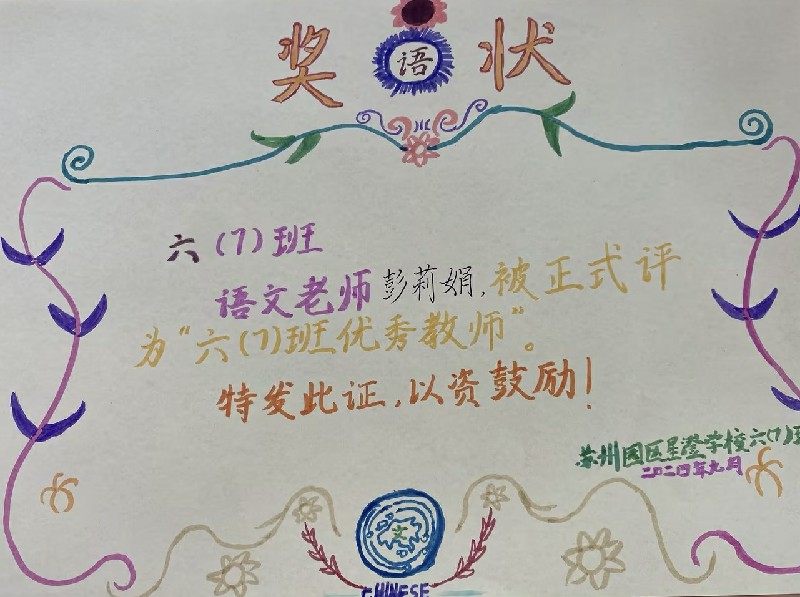 奖 语 状
六(7)班
语文老师彭莉娟,被正式评
为"六(7)班优秀教师"。
特发此证,以资鼓励!
苏州园区星澄学校六(7)班
二〇二四年九月
文
CHINESE